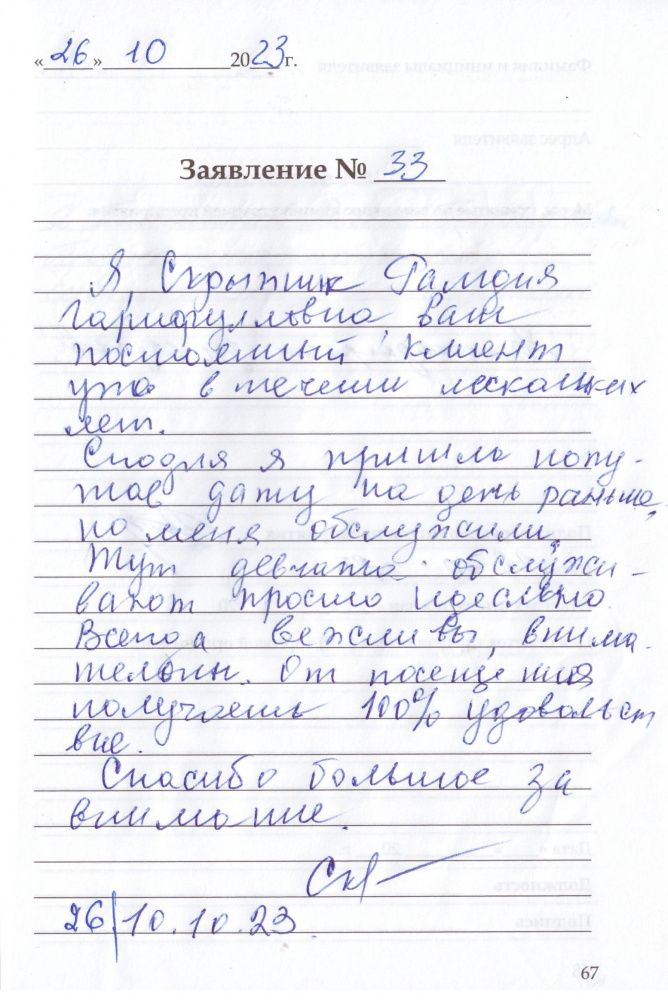 «26» 10 2023г.
Заявление № 33
Я, Скрыпник Гамдия
Гарифулловна, ваш
постоянный клиент
уже в течении нескольких
лет.
Сегодня я пришла попу-
тав дату на день раньше,
но меня обслужили.
Тут девчата обслужи-
вают просто идеально.
Всегда вежливы, внима-
тельны. От посещения
получаешь 100% удовольст
вие.
Спасибо большое за
внимание.
26/10.10.23.
67